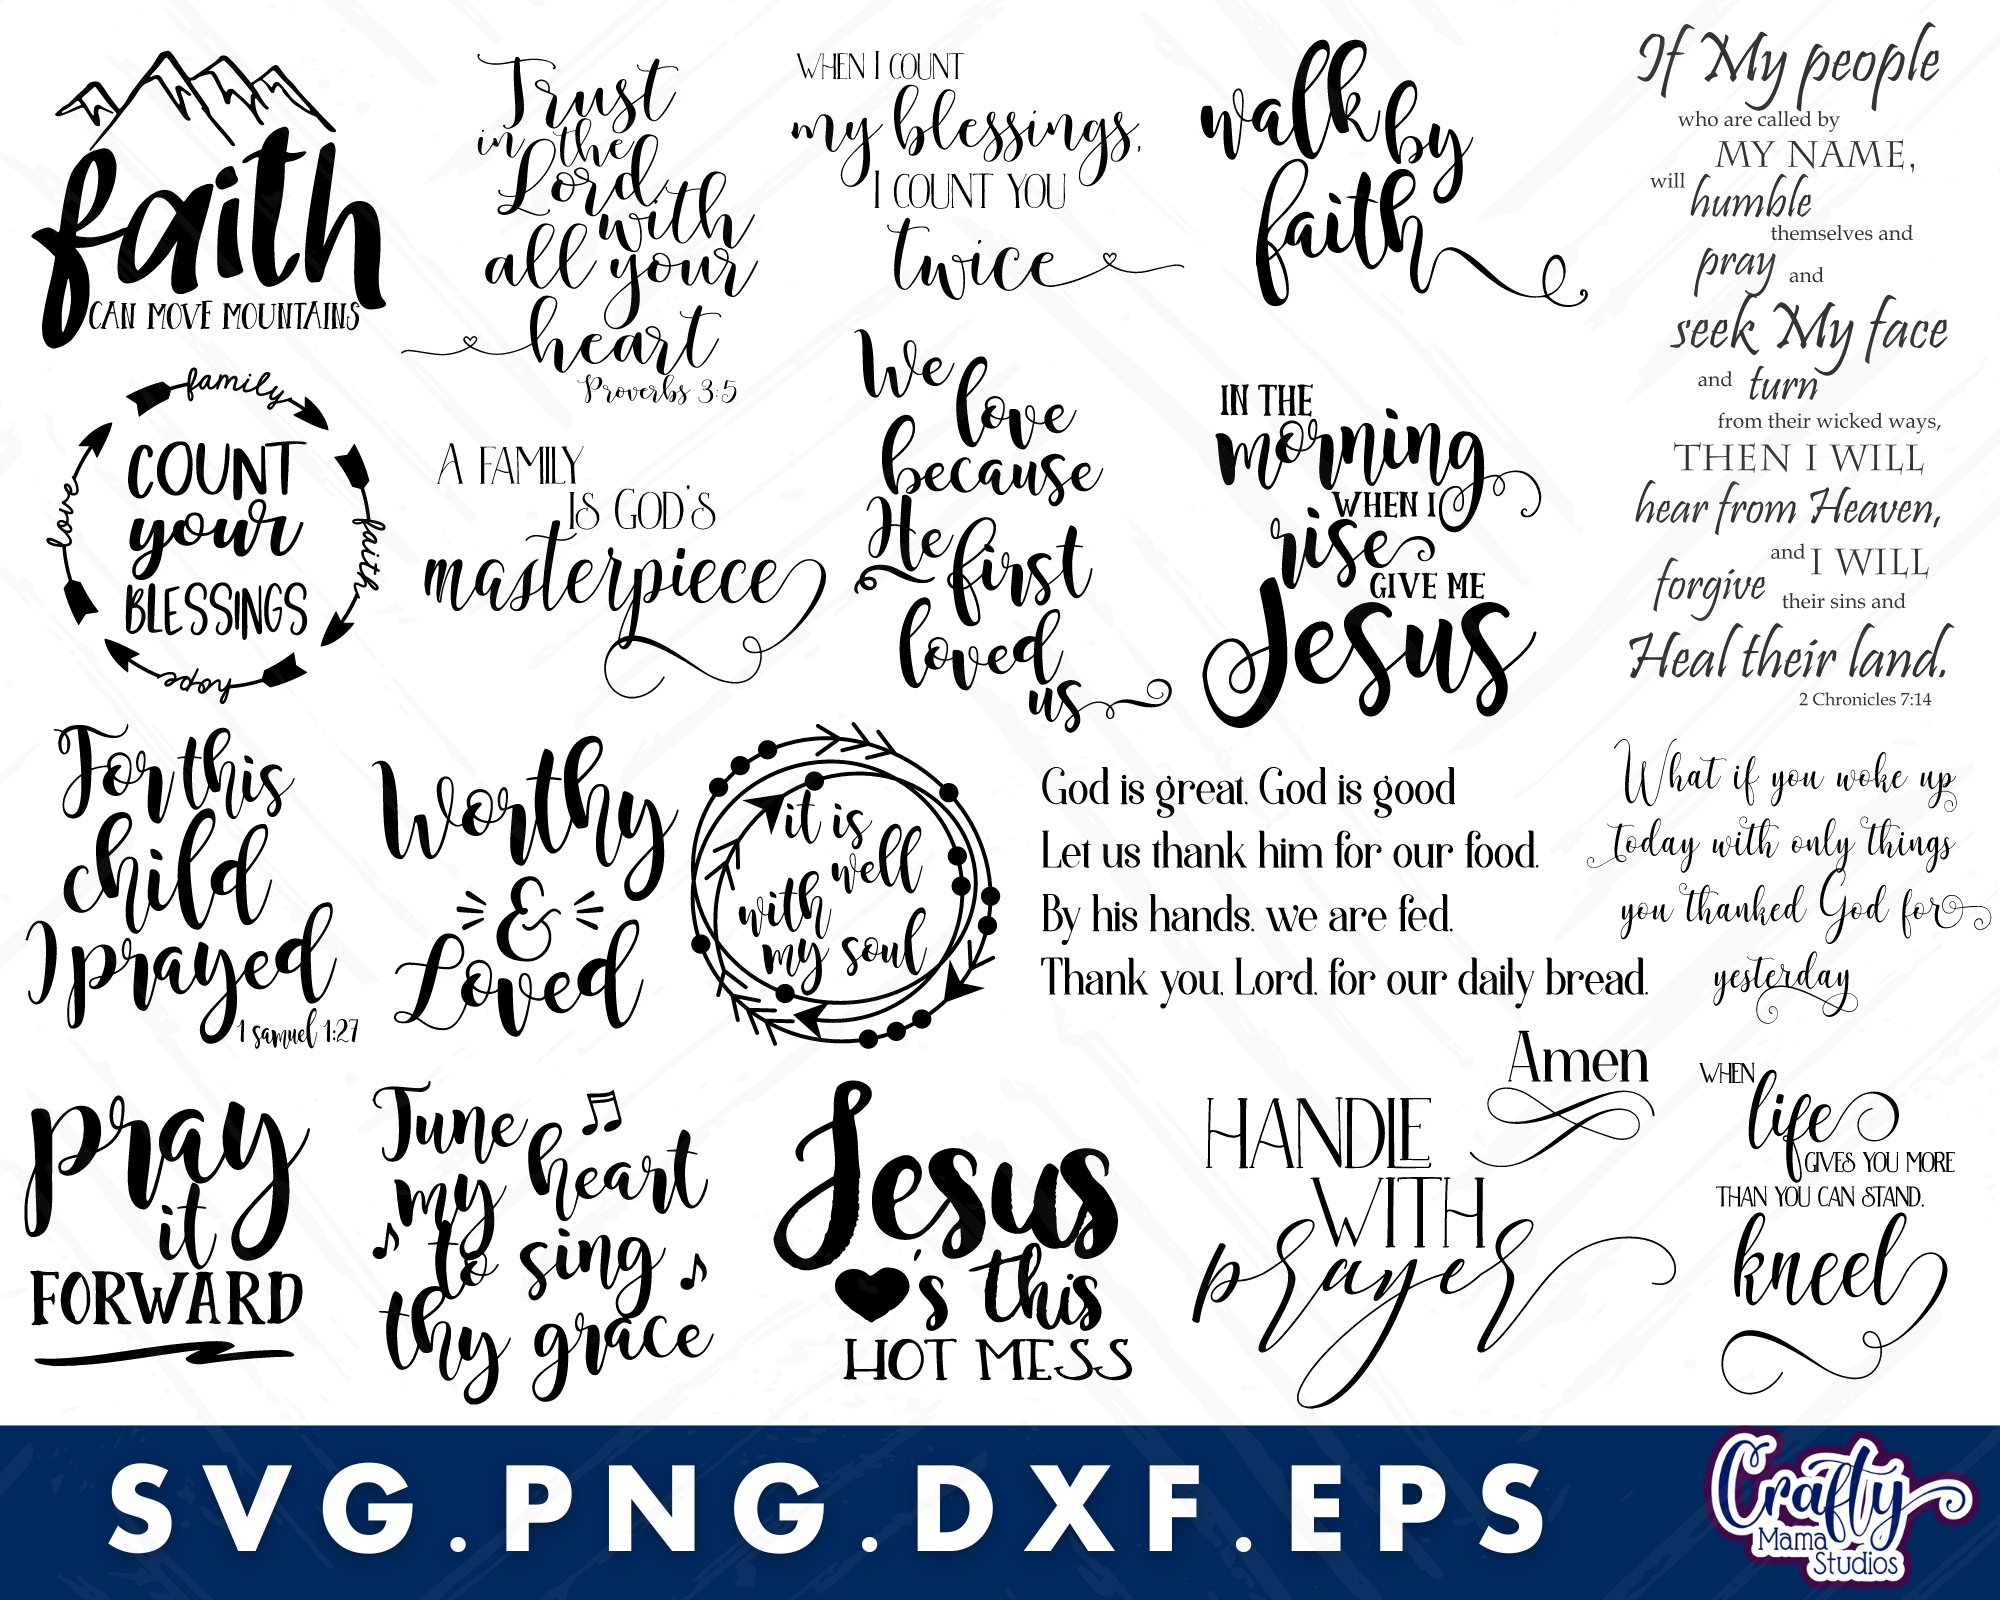 faith
CAN MOVE MOUNTAINS
Trust
in the
Lord
with
all your
heart
Proverbs 3:5
WHEN I COUNT
my blessings,
I COUNT YOU
twice
walk by
faith
If My people
who are called by
MY NAME,
will humble
themselves and
pray and
seek My face
and turn
from their wicked ways,
THEN I WILL
hear from Heaven,
and I WILL
forgive their sins and
Heal their land.
2 Chronicles 7:14
family
faith
hope
love
COUNT
your
BLESSINGS
A FAMILY
IS GOD'S
masterpiece
We
love
because
He
first
loved
us
IN THE
morning
WHEN I
rise
GIVE ME
Jesus
For this
child
I prayed
1 samuel 1:27
Worthy
&
Loved
it is
well
with
my soul
God is great, God is good
Let us thank him for our food.
By his hands, we are fed,
Thank you, Lord, for our daily bread.
Amen
What if you woke up
today with only things
you thanked God for
yesterday
pray
it
FORWARD
Tune
my heart
to sing
thy grace
Jesus
's this
HOT MESS
HANDLE
WITH
prayer
WHEN
life
GIVES YOU MORE
THAN YOU CAN STAND,
kneel
SVG.PNG.DXF.EPS
Crafty
Mama
Studios